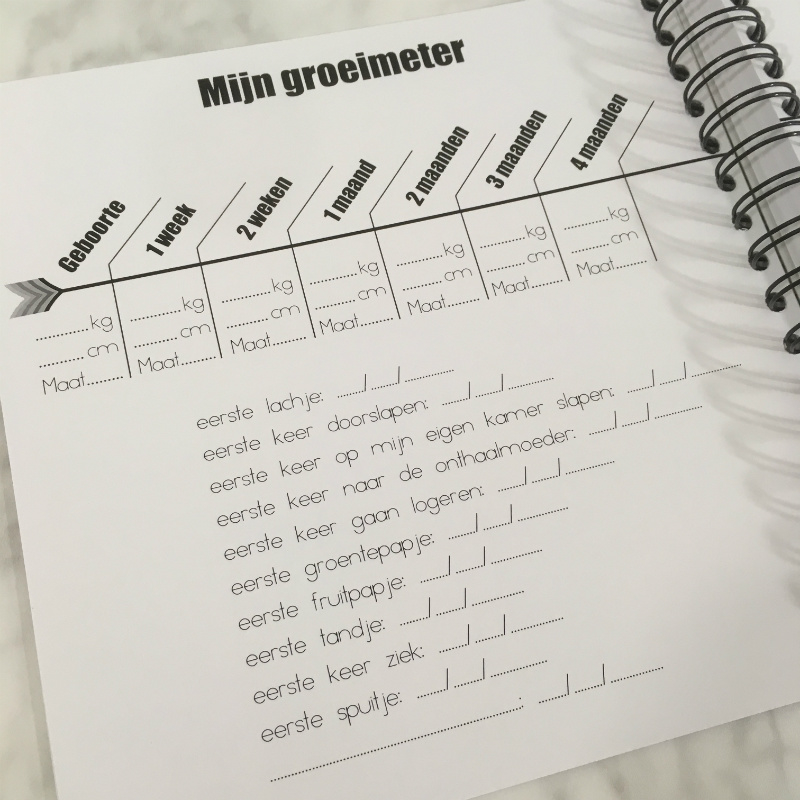 Mijn groeimeter
Geboorte 1 week 2 weken 1 maand 2 maanden 3 maanden 4 maanden
..........kg ..........kg ..........kg ..........kg ..........kg ..........kg ..........kg
..........cm ..........cm ..........cm ..........cm ..........cm ..........cm ..........cm
Maat........ Maat........ Maat........ Maat........ Maat........ Maat........ Maat........
eerste lachje: ....../....../..........
eerste keer doorslapen: ....../....../..........
eerste keer op mijn eigen kamer slapen: ....../....../..........
eerste keer naar de onthaalmoeder: ....../....../..........
eerste keer gaan logeren: ....../....../..........
eerste groentepapje: ....../....../..........
eerste fruitpapje: ....../....../..........
eerste tandje: ....../....../..........
eerste keer ziek: ....../....../..........
eerste spuitje: ....../....../..........
..................................................: ....../....../..........